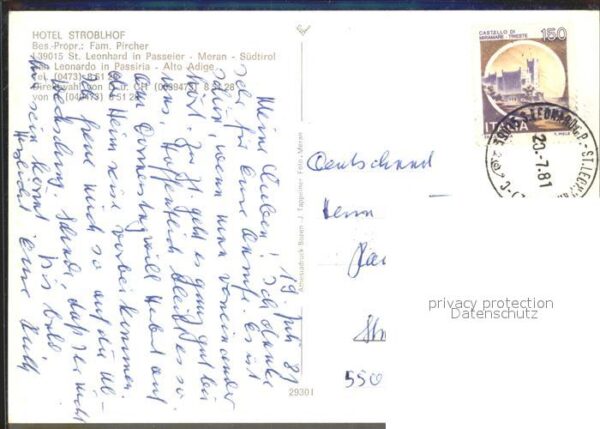 HOTEL STROBLHOF
Bes.-Propr.: Fam. Pircher
I-39015 St. Leonhard in Passeier - Meran - Südtirol
San Leonardo in Passiria - Alto Adige
Tel. (0473) 8 51 28
Direktwahl von D u. CH (0039473) 8 51 28
von 8 51 28
CASTELLO DI
MIRAMARE - TRIESTE
150
ITALIA
S. LEONARDO P. - ST. LEONH
20.-7.81
19. Juli 81
Meine Lieben! Ich danke
sehr für Eure Es ist
schön, wenn man voneinander
hört. Mir geht es ganz gut bei
uns. Hoffentlich bleibt es so.
Am Donnerstag will Hubert auf
der Heimreise vorbei kommen.
Ich freue mich so auf die
Schade, daß Ihr nicht
hier sein könnt. Bis bald
Herzlichst Eure
Deutschland
Herrn
550
Athesiadruck Bozen - J. Tappeiner Foto, Meran
29301
privacy protection
Datenschutz